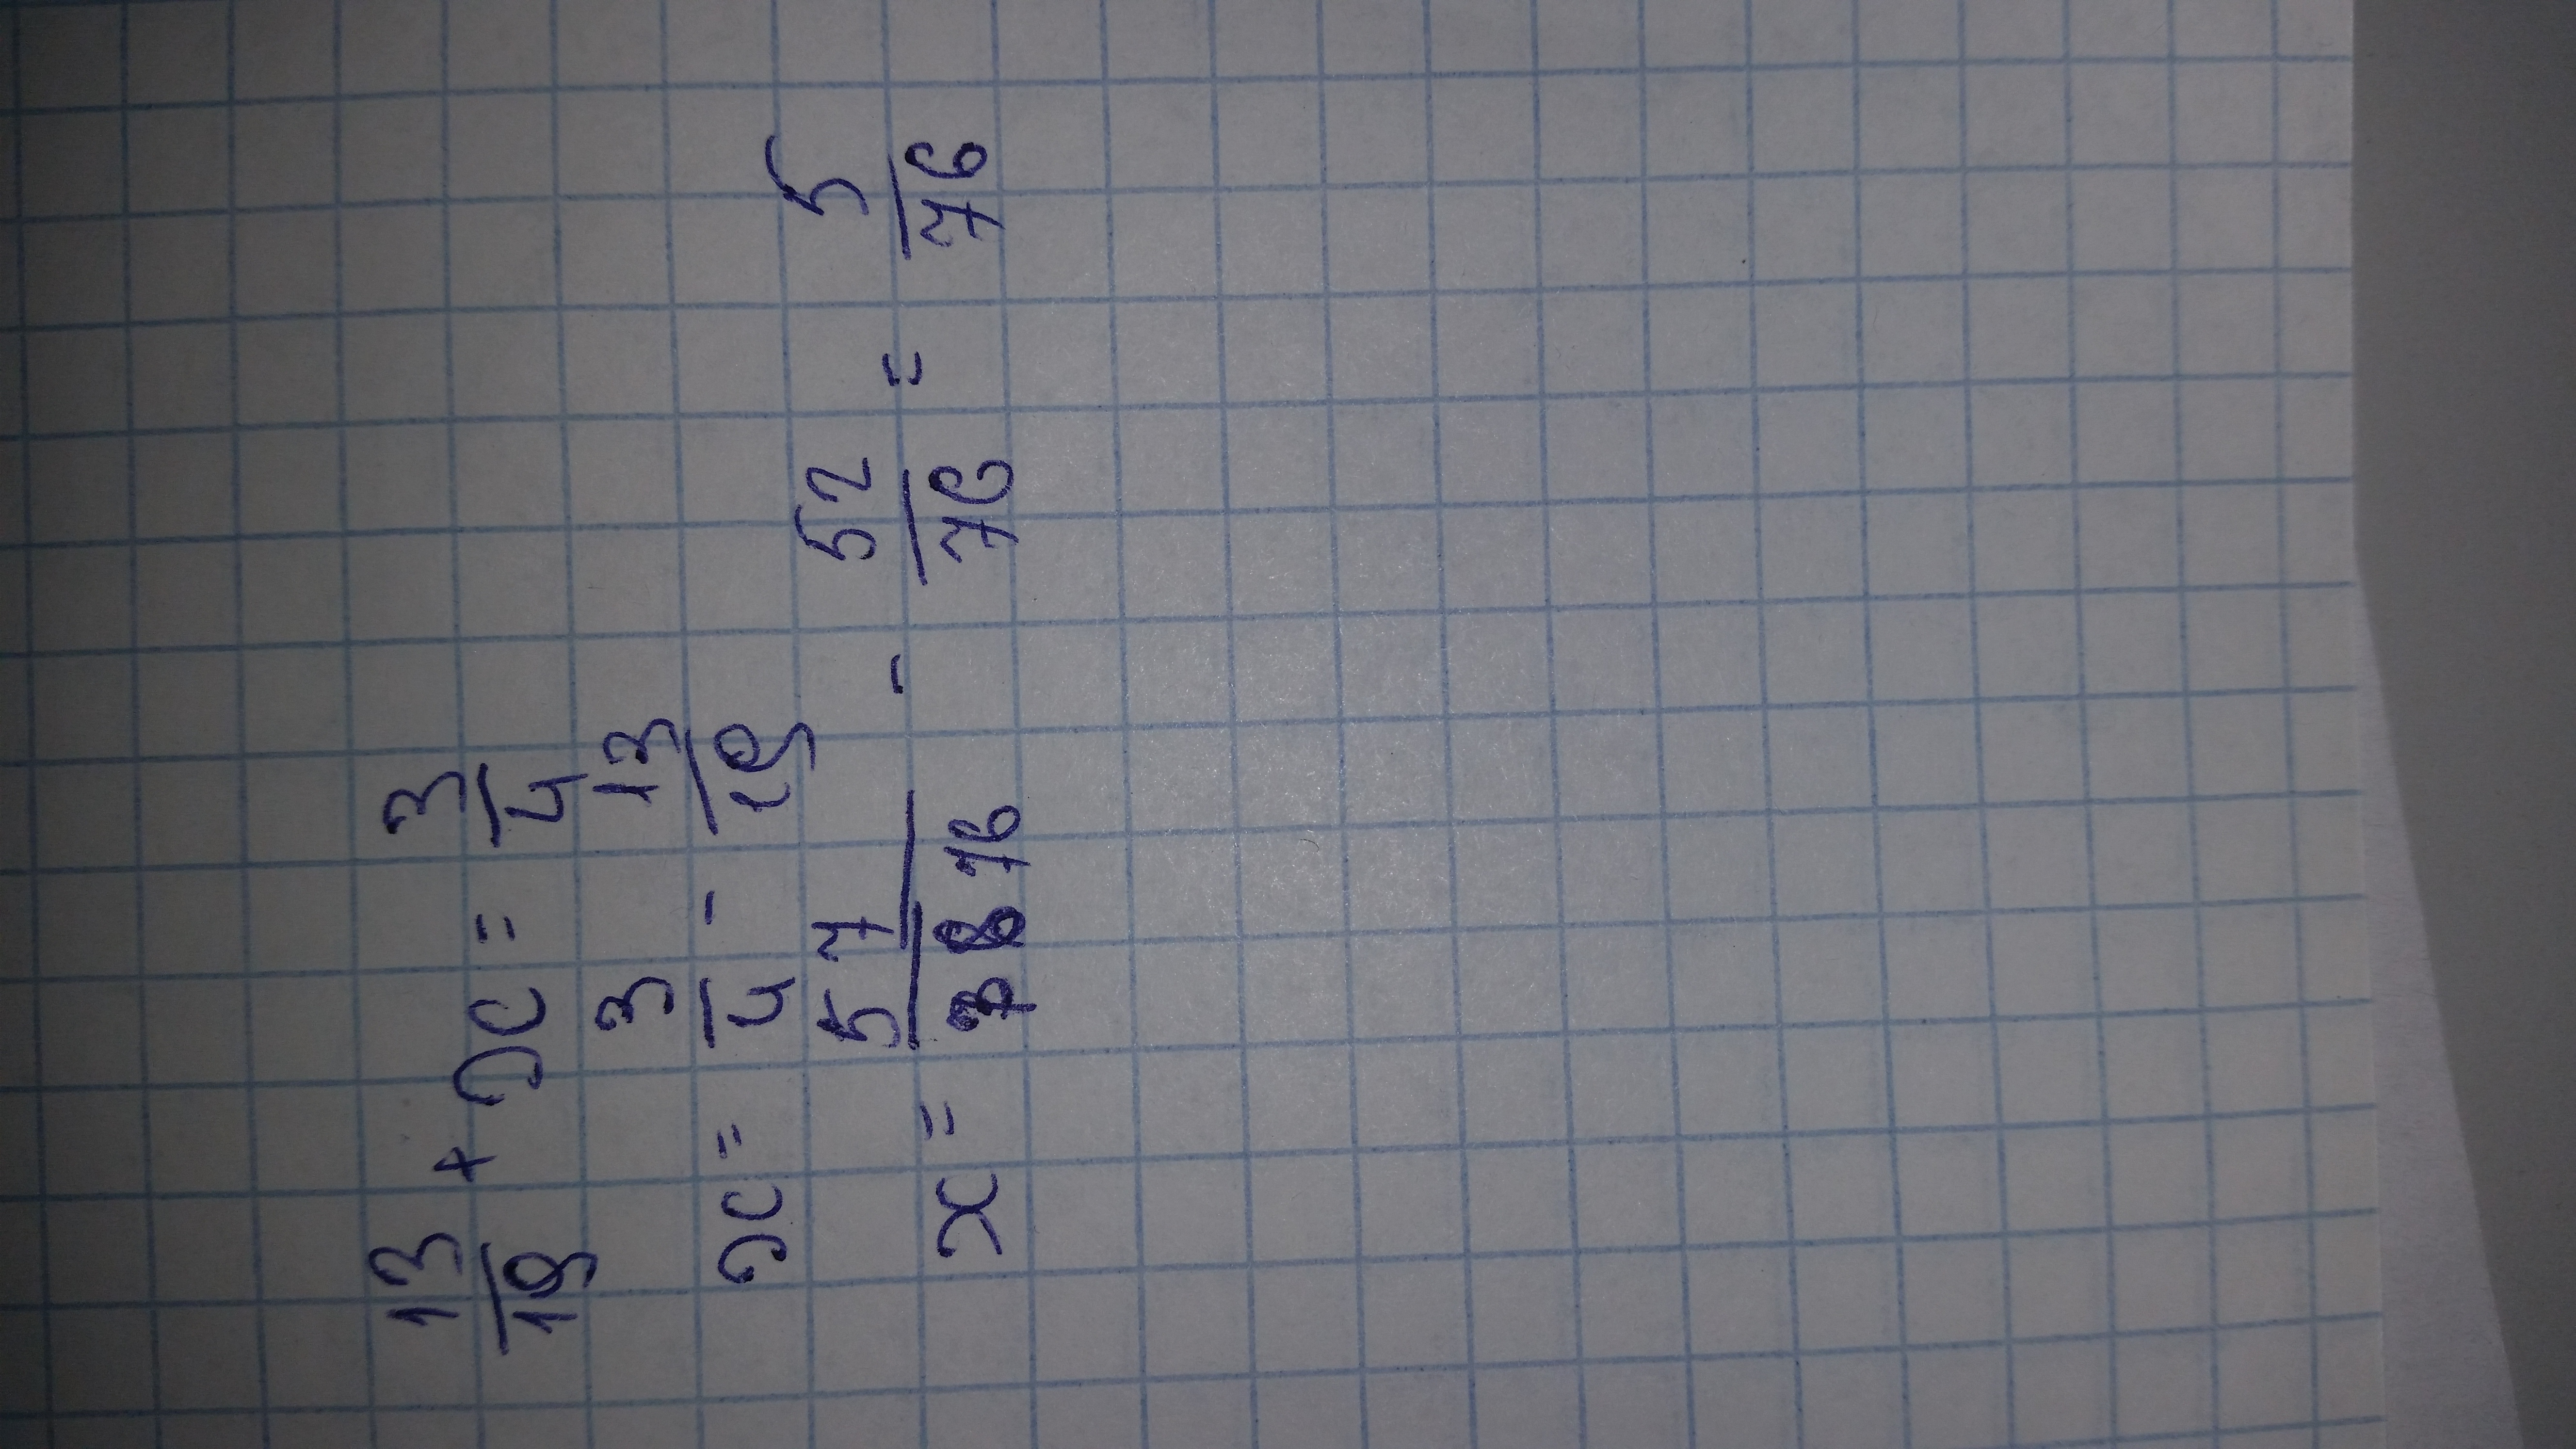 13/19 + x = 3/4
x = 3/4 - 13/19
x = 57/76 - 52/76 = 5/76